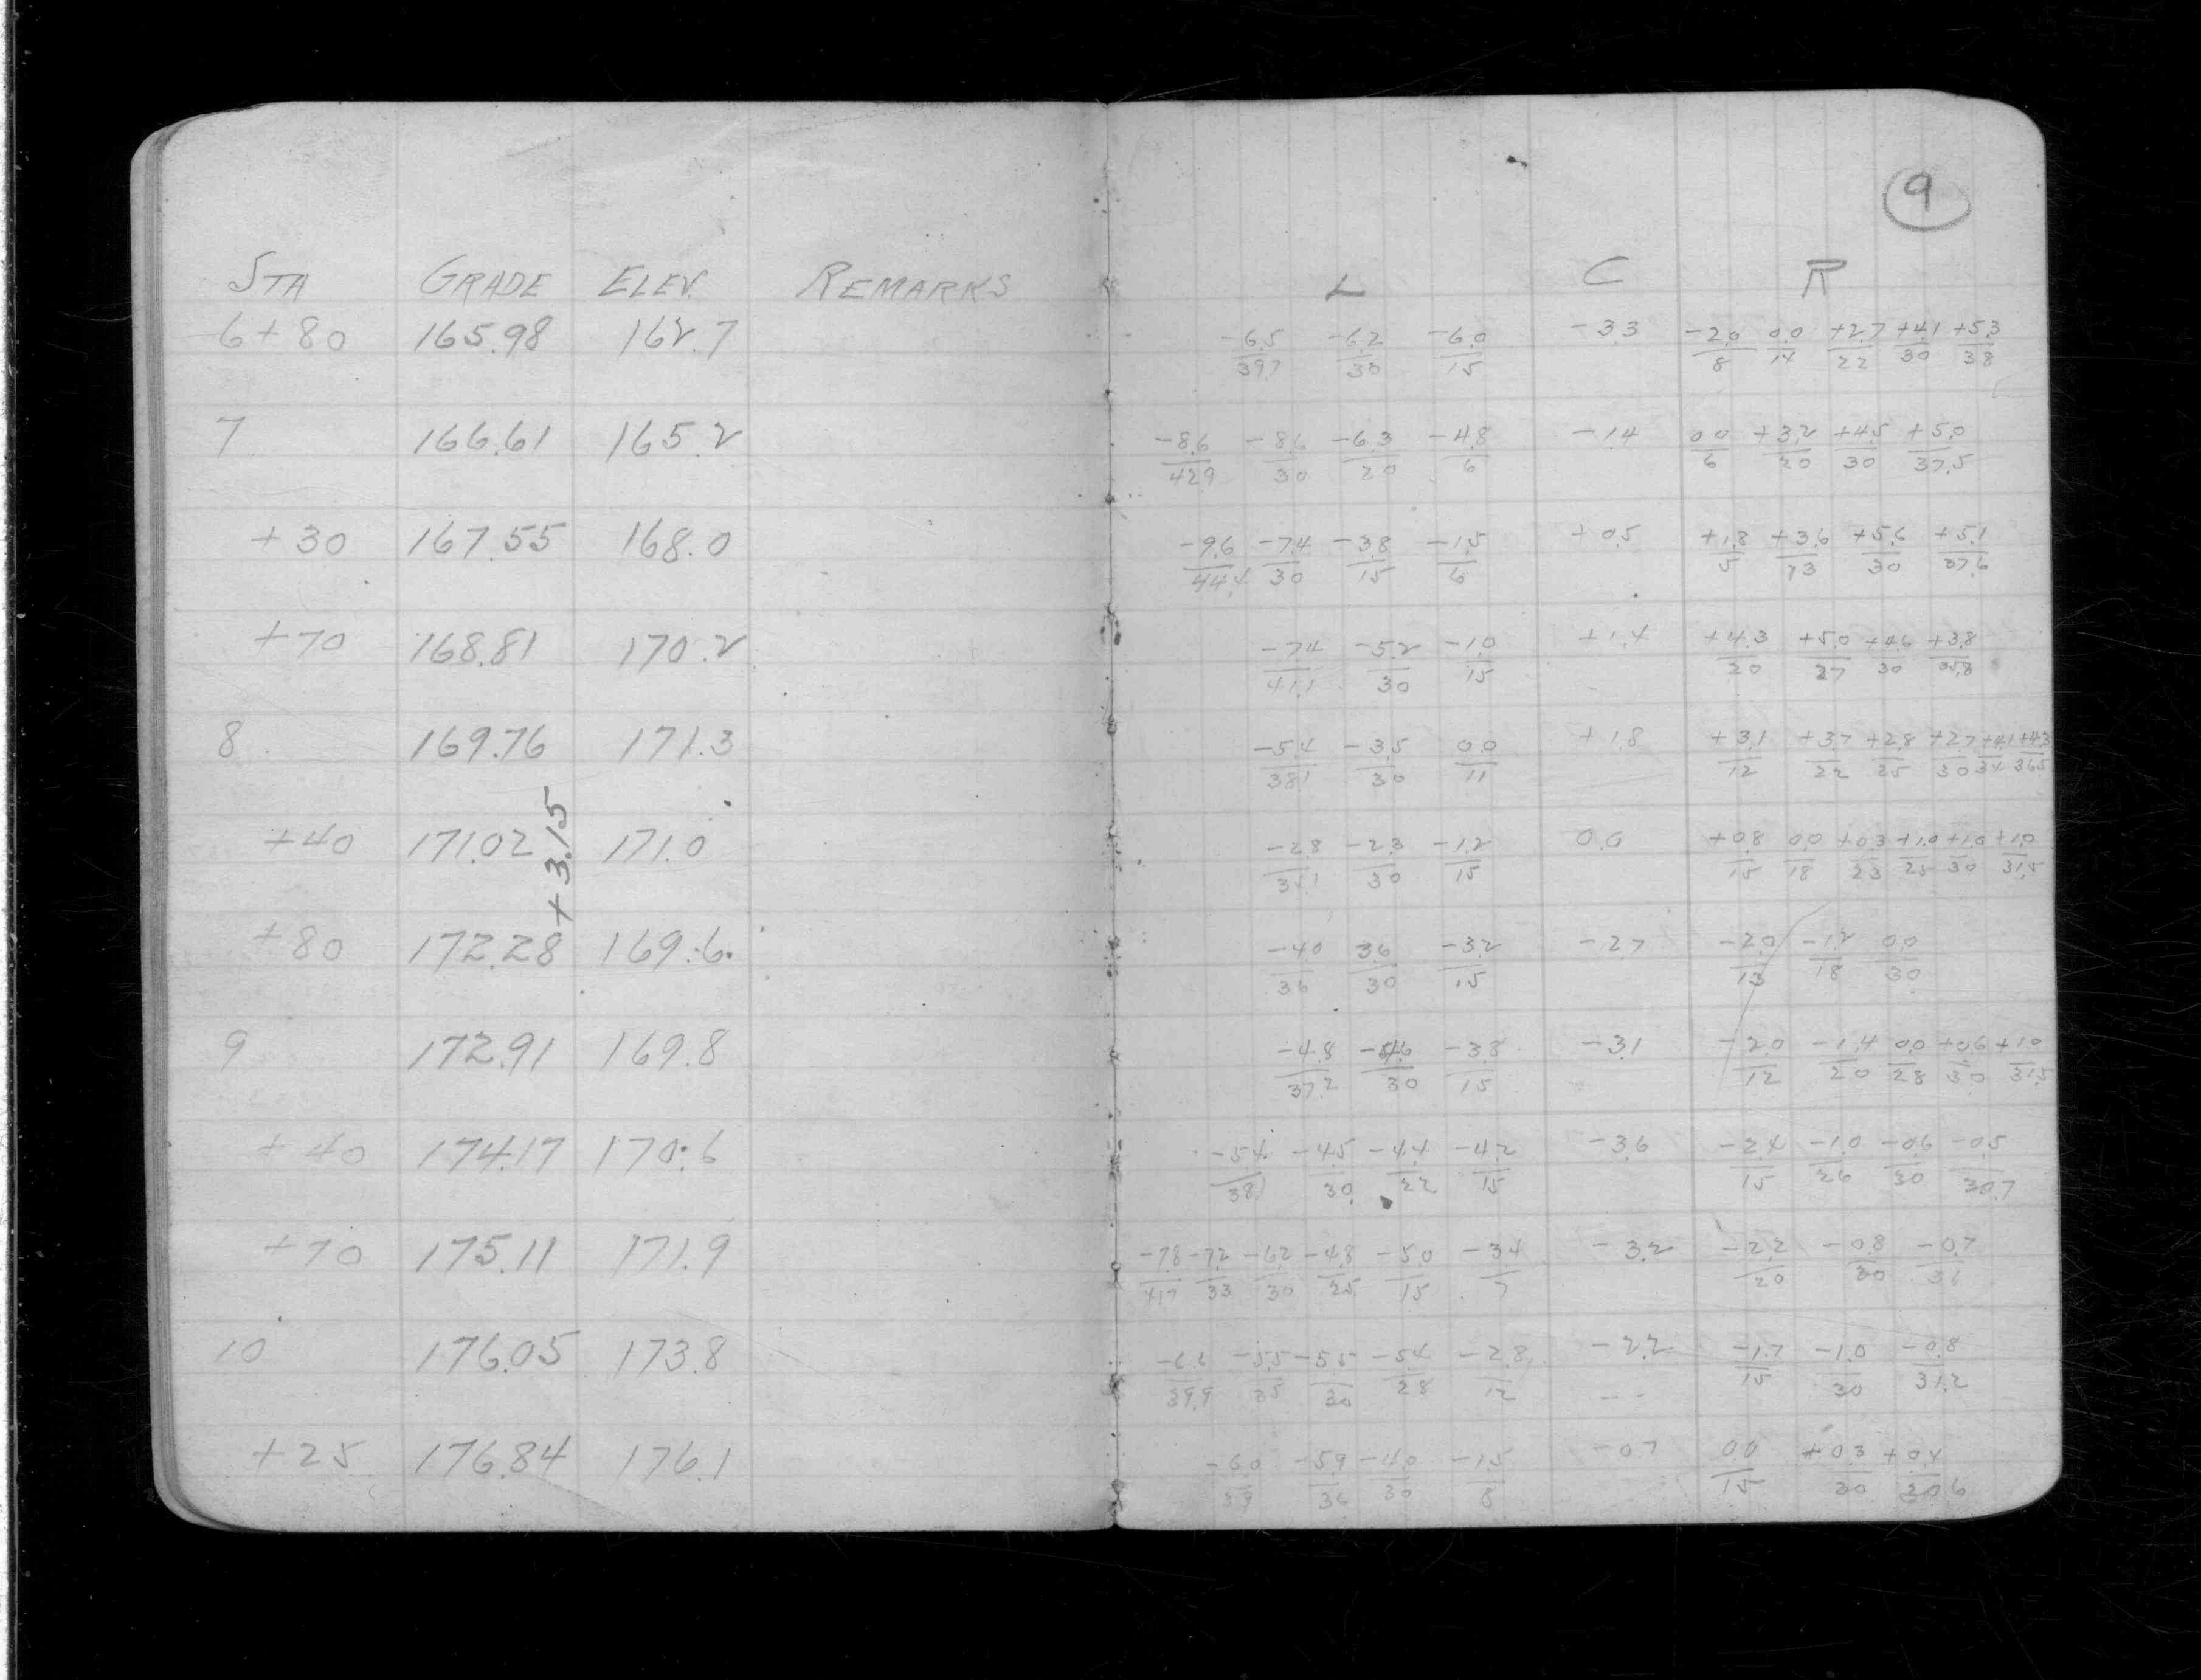 9
STA GRADE ELEV. REMARKS L C R
6+80 165.98 162.7 -6.5/39.7 -6.2/30 -6.0/15 -3.3 -2.0/8 0.0/14 +2.7/22 +4.1/30 +5.3/38
7 166.61 165.2 -8.6/42.9 -8.6/30 -6.3/20 -4.8/6 -1.4 0.0/6 +3.2/20 +4.5/30 +5.0/37.5
+30 167.55 168.0 -9.6/44.4 -7.4/30 -3.8/15 -1.5/6 +0.5 +1.8/5 +3.6/13 +5.6/30 +5.1/37.6
+70 168.81 170.2 -7.4/41.1 -5.2/30 -1.0/15 +1.4 +4.3/20 +5.0/27 +4.6/30 +3.8/35.8
8 169.76 171.3 -5.4/38.1 -3.5/30 0.0/11 +1.8 +3.1/12 +3.7/22 +2.8/25 +2.7/30 +4.1/34 +4.3/36.5
+3.15
+40 171.02 171.0 -2.8/34.1 -2.3/30 -1.2/15 0.0 +0.8/15 0.0/18 +0.3/23 +1.0/25 +1.0/30 +1.0/31.5
+80 172.28 169.6 -4.0/36 3.6/30 -3.2/15 -2.7 -2.0/13 -1.2/18 0.0/30
9 172.91 169.8 -4.8/37.2 -4.6/30 -3.8/15 -3.1 -2.0/12 -1.4/20 0.0/28 +0.6/30 +1.0/31.5
+40 174.17 170.6 -5.4/38.1 -4.5/30 -4.4/22 -4.2/15 -3.6 -2.4/15 -1.0/26 -0.6/30 -0.5/30.7
+70 175.11 171.9 -7.8/41.7 -7.2/33 -6.2/30 -4.8/25 -5.0/15 -3.4/7 -3.2 -2.2/20 -0.8/30 -0.7/36
10 176.05 173.8 -6.6/39.9 -5.5/35 -5.5/30 -5.4/28 -2.8/12 -2.2 -1.7/15 -1.0/30 -0.8/31.2
+25 176.84 176.1 -6.0/39 -5.9/36 -4.0/30 -1.5/8 -0.7 0.0/15 +0.3/30 +0.4/30.6